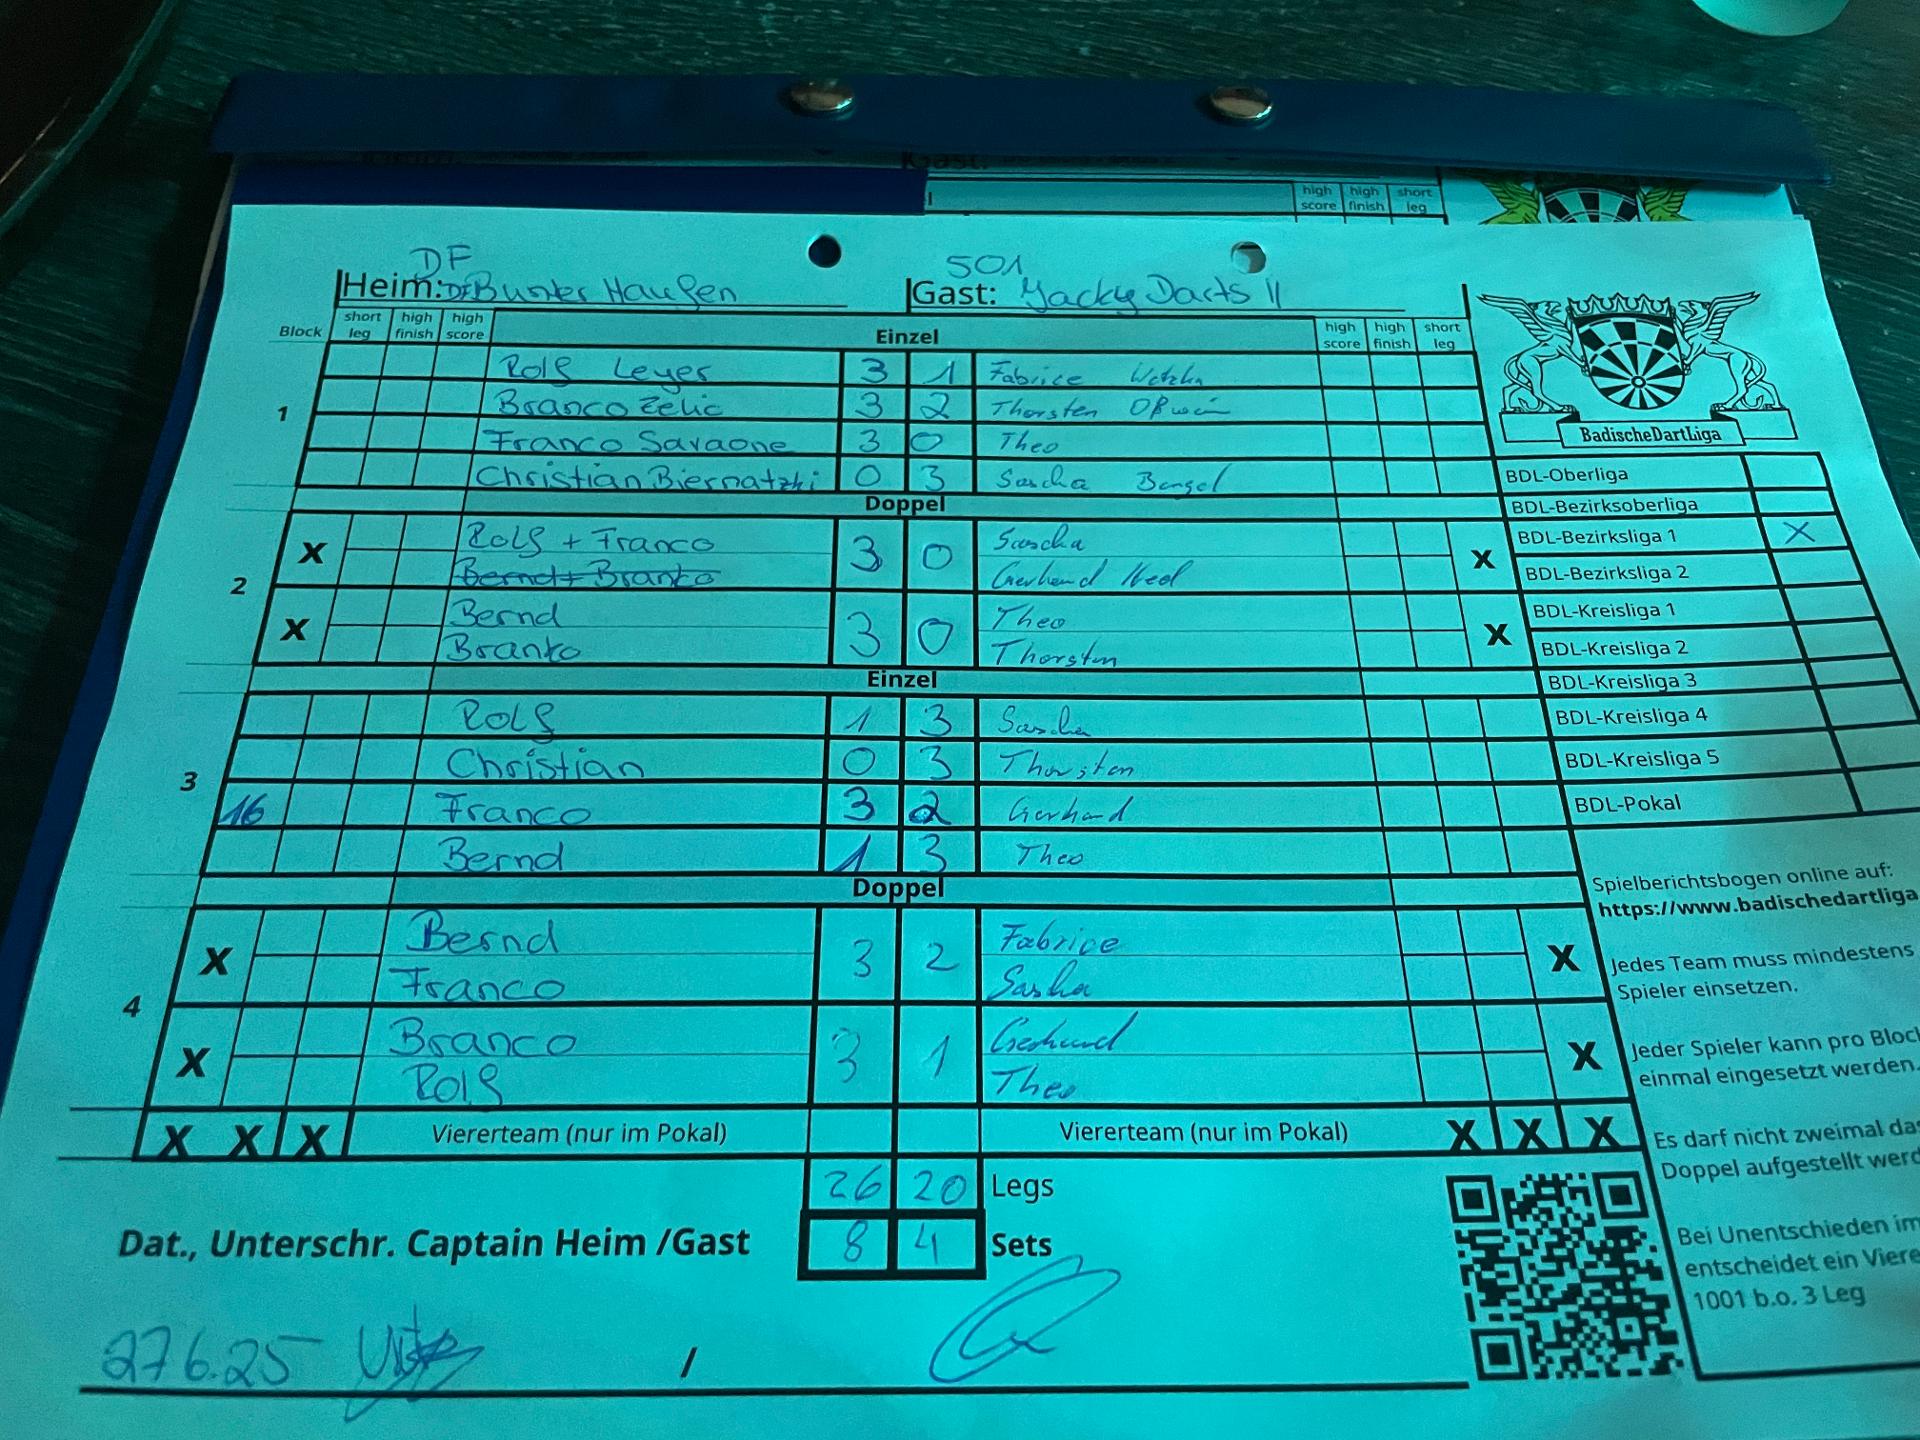 Gast:
high score high finish short leg
DF 501
Heim: DF Bunter Haufen Gast: Jacky Darts II
Block short leg high finish high score Einzel high score high finish short leg
1
Rolf Leyer 3 1 Fabrice
Branco Zelic 3 2 Thorsten Oßwin
Franco Savaone 3 0 Theo
Christian Biernatzki 0 3 Sascha Bengel
Doppel
2
X Rolf + Franco 3 0 Sascha X
Bernd + Branko Gerhard
X Bernd 3 0 Theo X
Branko Thorsten
Einzel
3
Rolf 1 3 Sascha
Christian 0 3 Thorsten
16 Franco 3 2 Gerhard
Bernd 1 3 Theo
Doppel
4
X Bernd 3 2 Fabrice X
Franco Sasha
X Branco 3 1 Gerhard X
Rolf Theo
X X X Viererteam (nur im Pokal) Viererteam (nur im Pokal) X X X
26 20 Legs
Dat., Unterschr. Captain Heim /Gast 8 4 Sets
276.25 /
BadischeDartLiga
BDL-Oberliga
BDL-Bezirksoberliga
BDL-Bezirksliga 1 X
BDL-Bezirksliga 2
BDL-Kreisliga 1
BDL-Kreisliga 2
BDL-Kreisliga 3
BDL-Kreisliga 4
BDL-Kreisliga 5
BDL-Pokal
Spielberichtsbogen online auf:
https://www.badischedartliga
Jedes Team muss mindestens
Spieler einsetzen.
Jeder Spieler kann pro Block
einmal eingesetzt werden.
Es darf nicht zweimal das
Doppel aufgestellt werd
Bei Unentschieden im
entscheidet ein Viere
1001 b.o. 3 Leg